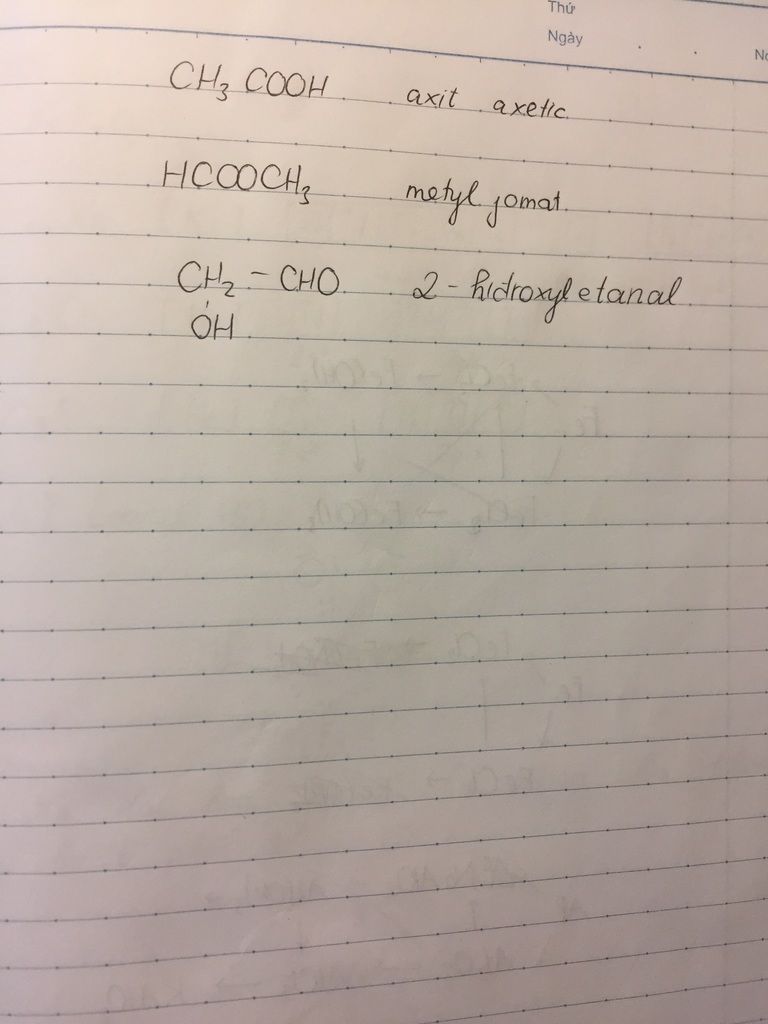 Thứ
Ngày
No
CH₃COOH axit axetic
HCOOCH₃ metyl fomat
CH₂ - CHO 2 - hidroxyl etanal
OH